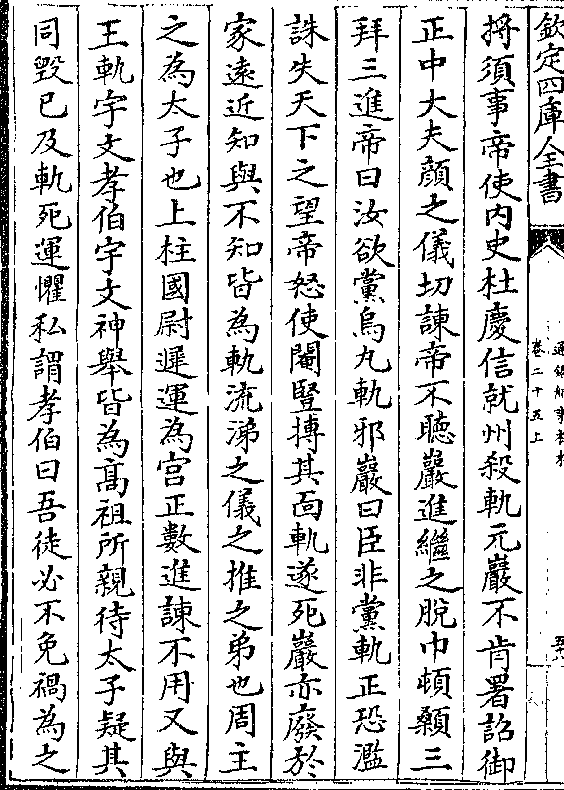 欽定四庫全書
通鑑紀事本末
卷二十五上
将須事帝使内史杜慶信就州殺軌元巖不肯署詔御
正中大夫顔之儀切諫帝不聽巖進繼之脱巾頓顙三
拜三進帝曰汝欲黨烏丸軌邪巖曰臣非黨軌正恐濫
誅失天下之望帝怒使閹豎搏其面軌遂死巖亦廢於
家遠近知與不知皆為軌流涕之儀之推之弟也周主
之為太子也上柱國尉遲運為宫正數進諫不用又與
王軌宇文孝伯宇文神舉皆為髙祖所親待太子疑其
同毁已及軌死運懼私謂孝伯曰吾徒必不免禍為之